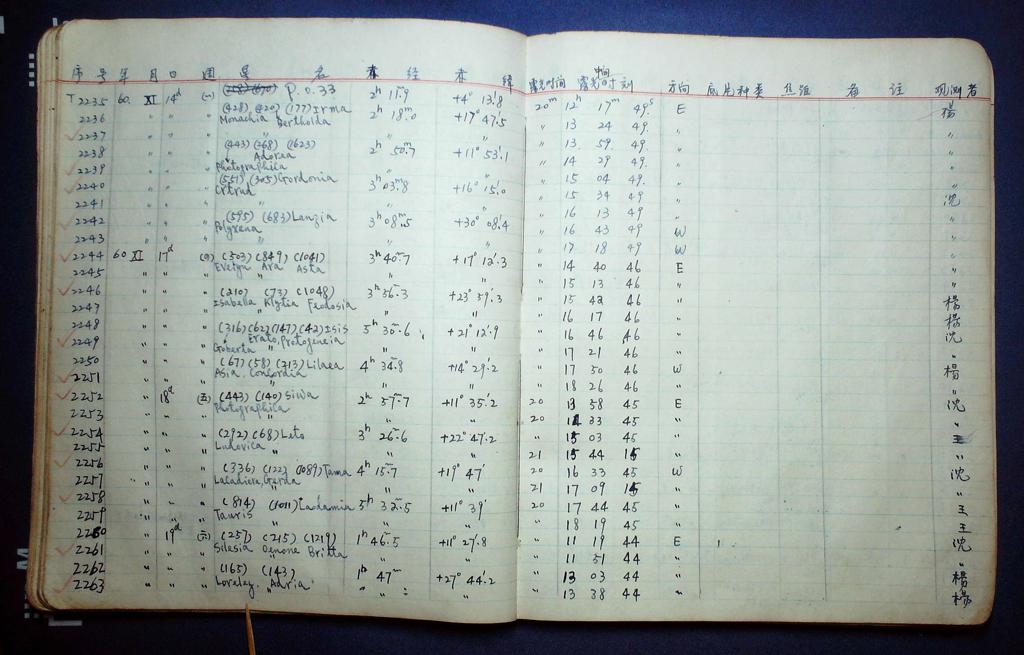 序号 年 月 日 週 星 名 赤经 赤纬 露光时间 中间露光时刻 方向 底片种类 焦距 备注 观测者
T 2235 60. XI 14d (一) P.0.33 2h 11.9 +4° 13.8 20m 12h 17m 49s E 楊
2236 " " (428) (420) (177) Irma 2h 18.0 +17° 47.5 " 13 24 49. "
2237 Monachia Bertholda " 13 59. 49. "
2238 " " (443) (268) (1623) 2h 50.7 +11° 53.1 " 14 29 49. "
2239 Photographica Adorea " 15 04 49. "
2240 " " (305) Gordonia 3h 03.8 +16° 15.0 " 15 34 49 沈
2241 " " " 16 13 49 "
2242 " " (595) (683) Lanzia 3h 08.5 +30° 08.4 " 16 43 49 W "
2243 Polyxena " 17 18 49 W "
2244 60 XI 17d (503) (849) (1041) 3h 40.7 +17° 12.3 " 14 40 46 E "
2245 " " Evelyn Ara Asta " 15 13 46 "
2246 " " (210) (73) (1048) 3h 56.3 +23° 59.3 " 15 42 46 " 楊
2247 " " Isabella Klytia Feodosia " 16 17 46 " 楊
2248 " " (316) (62) (147) (42) Isis 5h 30.6 +21° 12.9 " 16 46 46 " 沈
2249 " " Goberta Erato, Protogeneia " 17 21 46 "
2250 " " (67) (58) (213) Lilaea 4h 34.8 +14° 29.2 " 17 50 46 W 楊
2251 " " Asia Concordia " 18 26 46 "
2252 " 18d (五) (443) (140) Siwa 2h 57.7 +11° 35.2 20 13 58 45 E 沈
2253 " " Photographica 20 14 33 45 "
2254 " " (292) (68) Leto 3h 26.6 +22° 47.2 " 15 03 45 " 王
2255 " " Ludovica 21 15 44 15 " "
2256 " " (336) (122) (1089) Tama 4h 15.7 +19° 47' 20 16 33 45 W 沈
2257 " " Lacadiera, Gerda 21 17 09 15 " "
2258 " " (814) (1011) Laodamia 5h 32.5 +11° 39' 20 17 44 45 " 王
2259 " " Tauris " 18 19 45 " 王
2260 " 19d (六) (257) (215) (1219) 1h 46.5 +11° 27.8 " 11 19 44 E 沈
2261 " " Silesia Oenone Britta " 11 51 44 "
2262 " " (165) (143) 1h 47m +27° 44.2 " 13 03 44 " 楊
2263 " " Loreley, Adria " " " 13 38 44 " 楊